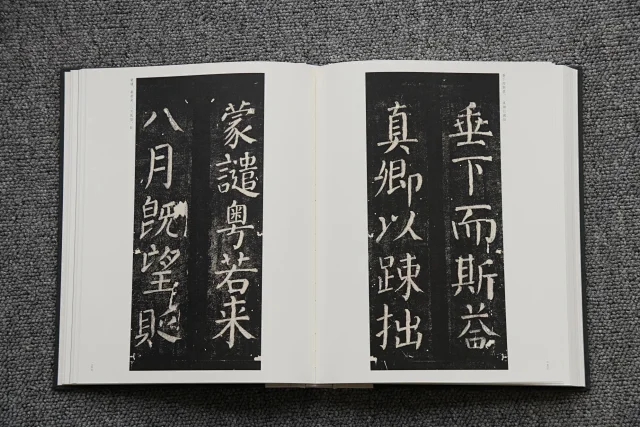 垂下而斯益
真卿以疎拙
蒙譴粤若来
八月既望貶